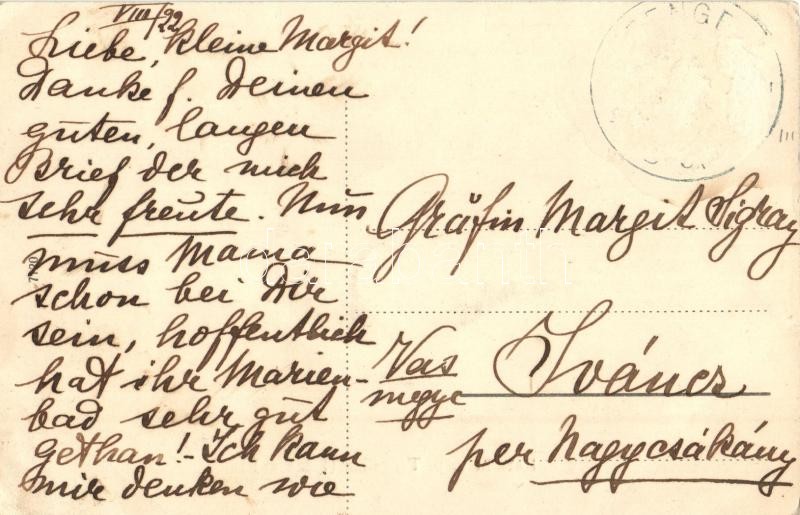 VIII/22
Liebe, kleine Margit!
Danke f. Deinen
guten, langen
Brief der mich
sehr freute. Nun
muss Mama
schon bei Dir
sein, hoffentlich
hat ihr Marien-
bad sehr gut
gethan! - Ich kann
mir denken wie
Gräfin Margit Sigray
Iváncz
Vas
megye
per Nagycsákány